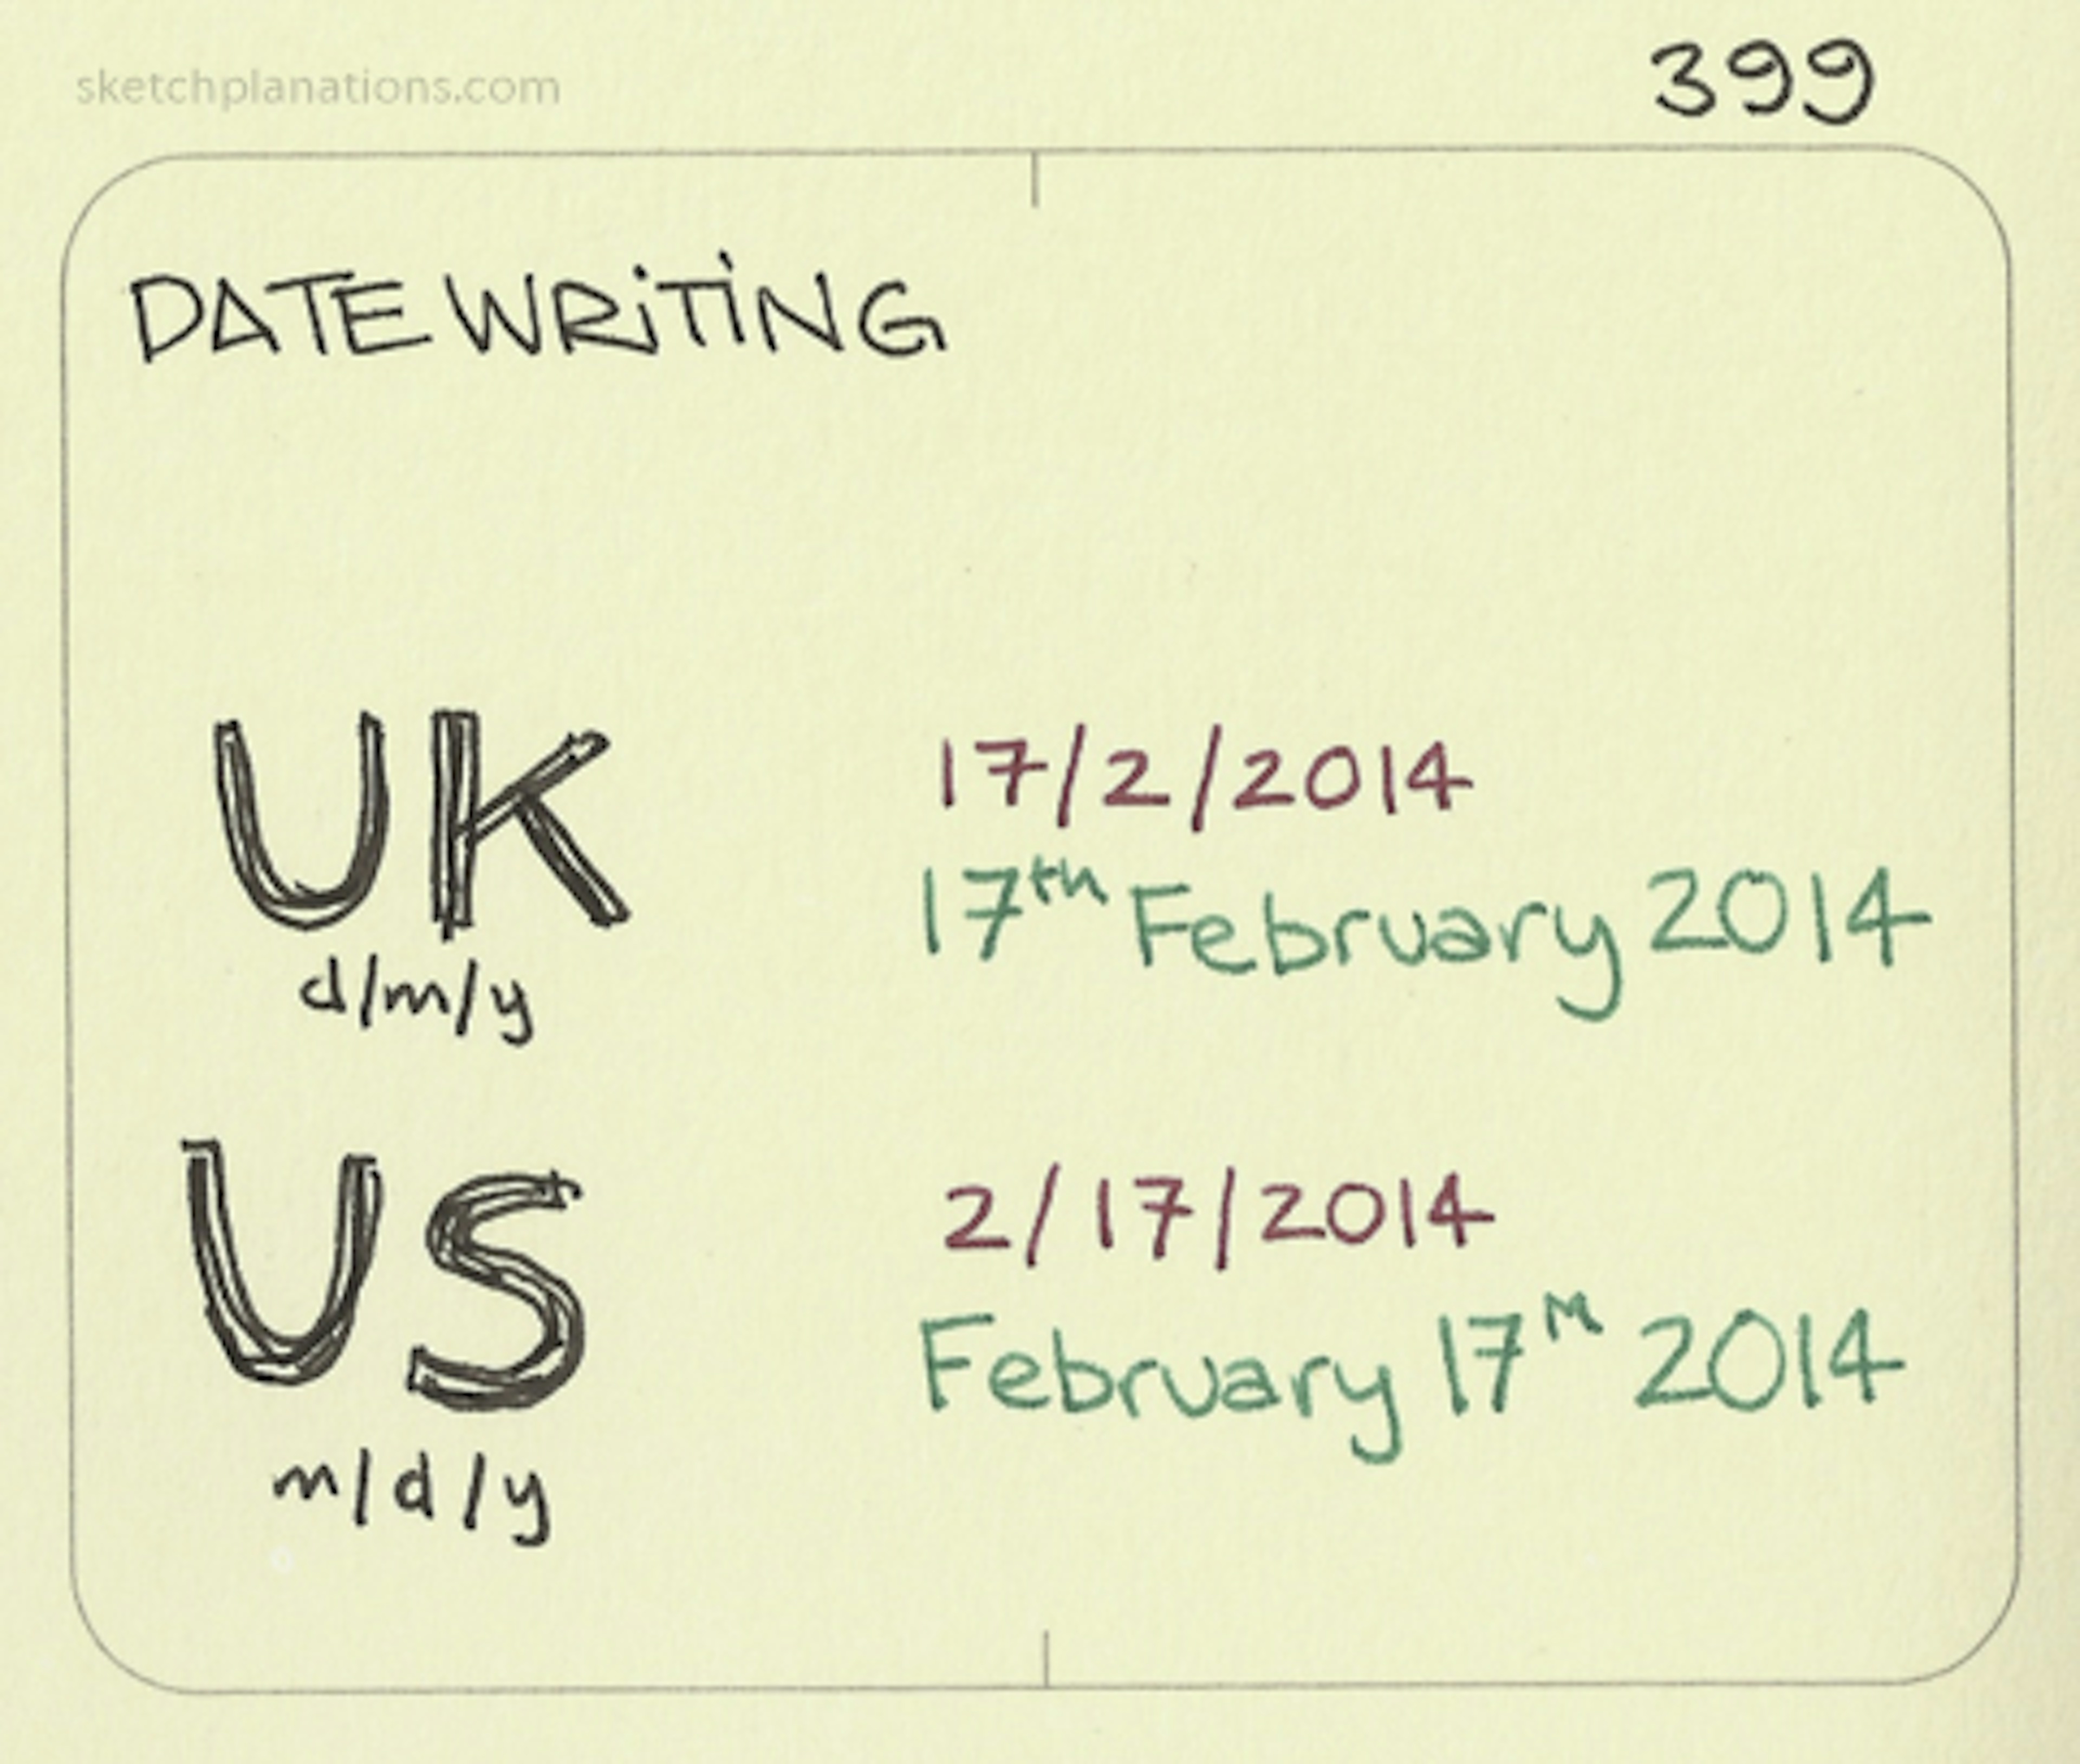 sketchplanations.com
399
DATE WRiTiNG
UK
d/m/y
17/2/2014
17th February 2014
US
m/d/y
2/17/2014
February 17th 2014